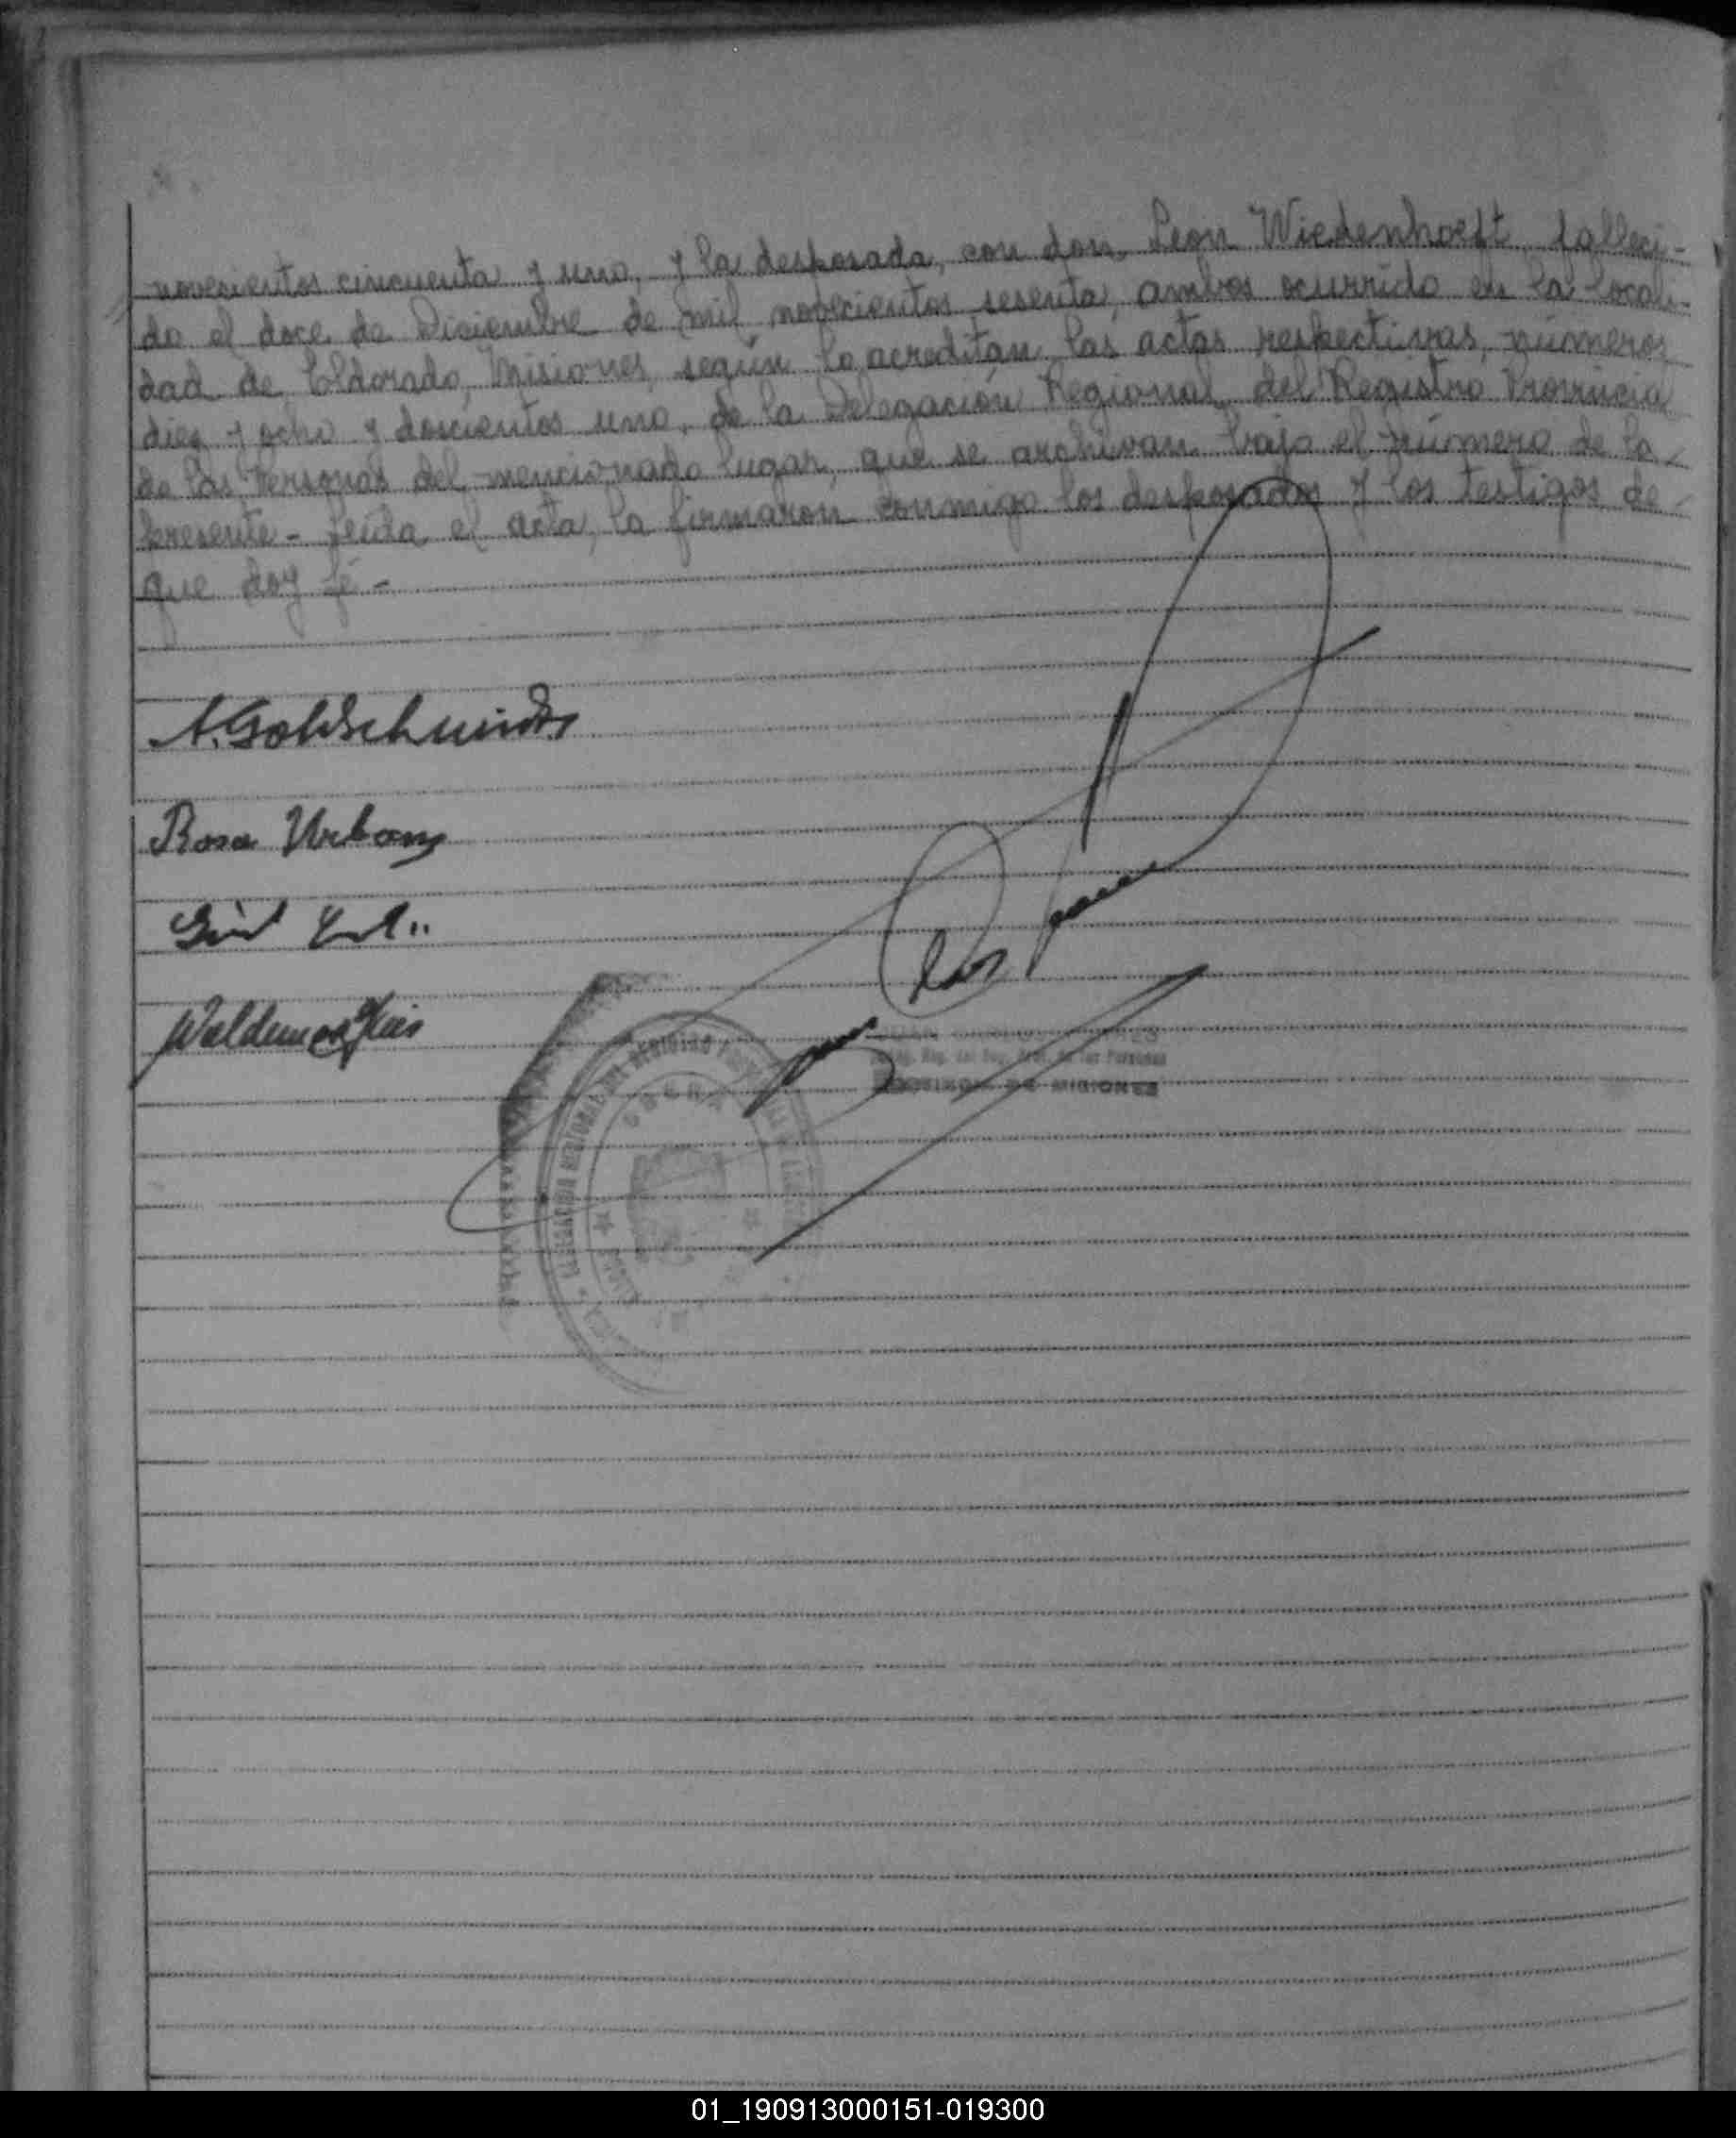 novecientos cincuenta y uno, y la desposada, con don, Leon Wiedenhoeft, falleci-
do el doce de Diciembre de mil novecientos sesenta, ambos ocurrido en la locali-
dad de Eldorado, Misiones, según lo acreditan las actas respectivas, números
diez y ocho y doscientos uno, de la Delegación Regional del Registro Provincia
de las Personas del mencionado lugar, que se archivan bajo el número de la
presente - Leída el acta, la firmaron conmigo los desposados y los testigos de
que doy fé -
A. Goldschmidt
Rosa Urbany
Waldemar
PROVINCIA DE MISIONES
01_190913000151-019300